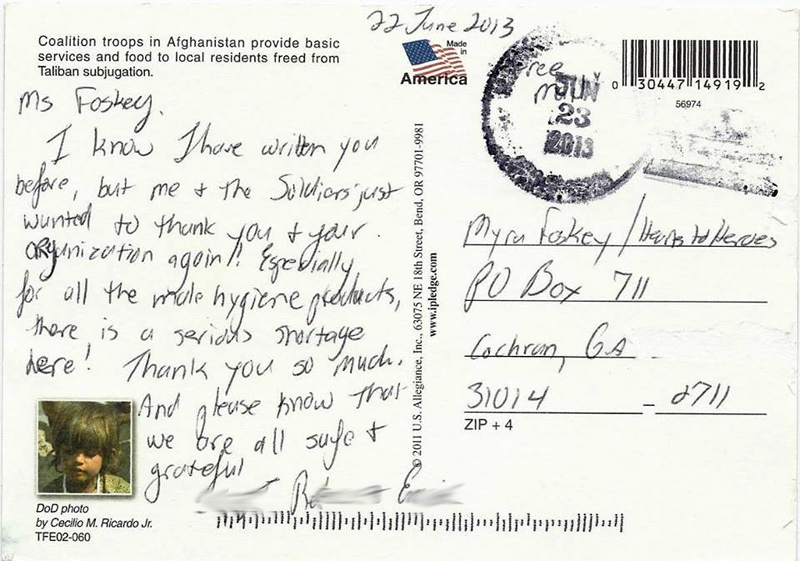 22 June 2013
Coalition troops in Afghanistan provide basic
services and food to local residents freed from
Taliban subjugation.
Made
in
America
0 30447 14919 2
56974
Free
Mail
JUN
23
2013
Ms Foskey,
I know I have written you
before, but me + the Soldiers just
wanted to thank you + your
organization again! Especially
for all the male hygiene products,
there is a serious shortage
here! Thank you so much.
And please know that
we are all safe +
grateful
© 2011 U.S. Allegiance, Inc., 63075 NE 18th Street, Bend, OR 97701-9981
www.ipledge.com
Myra Foskey / Hearts to Heroes
PO Box 711
Cochran, GA
31014 - 2711
ZIP + 4
DoD photo
by Cecilio M. Ricardo Jr.
TFE02-060